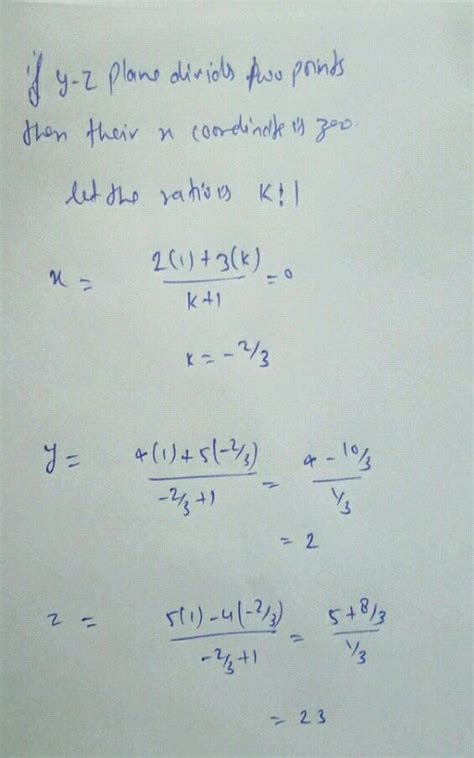 if y-z plane divids two points
then their x coordinate is zero.
let the ratio is k:1
x = (2(1)+3(k))/(k+1) = 0
k = -2/3
y = (4(1)+5(-2/3))/(-2/3+1) = (4-10/3)/(1/3)
= 2
z = (5(1)-4(-2/3))/(-2/3+1) = (5+8/3)/(1/3)
= 23